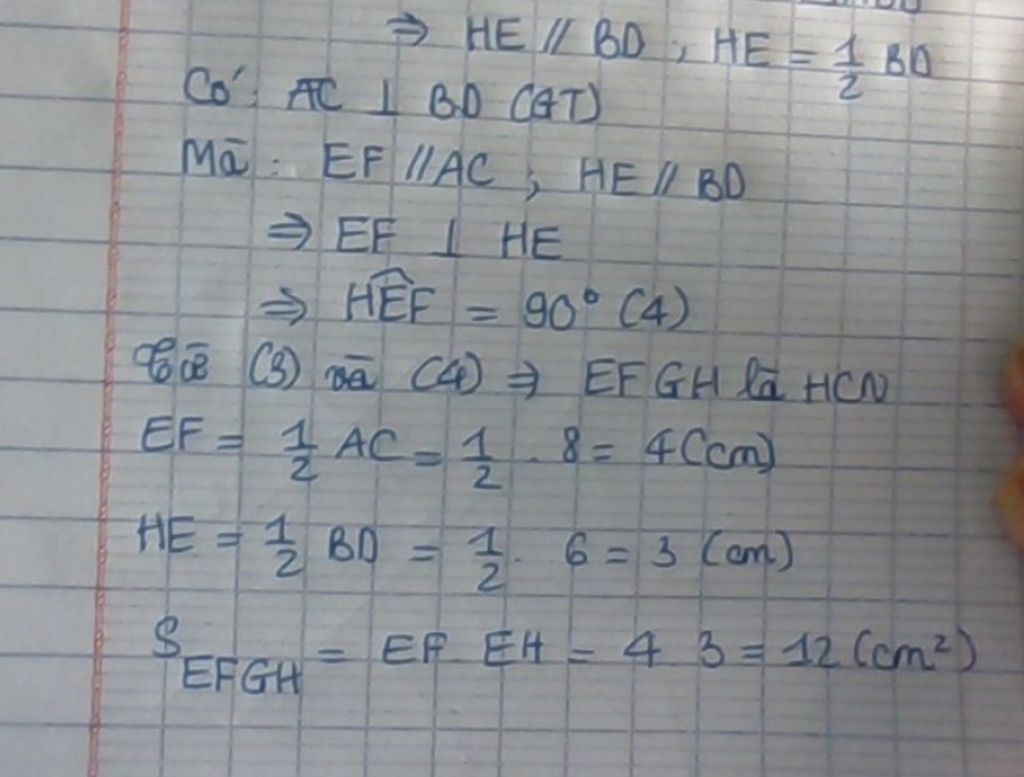 ⇒ HE // BD ; HE = 1/2 BD
Có: AC ⊥ BD (GT)
Mà: EF // AC ; HE // BD
⇒ EF ⊥ HE
⇒ HEF = 90° (4)
Từ (3) và (4) ⇒ EFGH là HCN
EF = 1/2 AC = 1/2 . 8 = 4 (cm)
HE = 1/2 BD = 1/2 . 6 = 3 (cm)
S EFGH = EF EH = 4 3 = 12 (cm²)